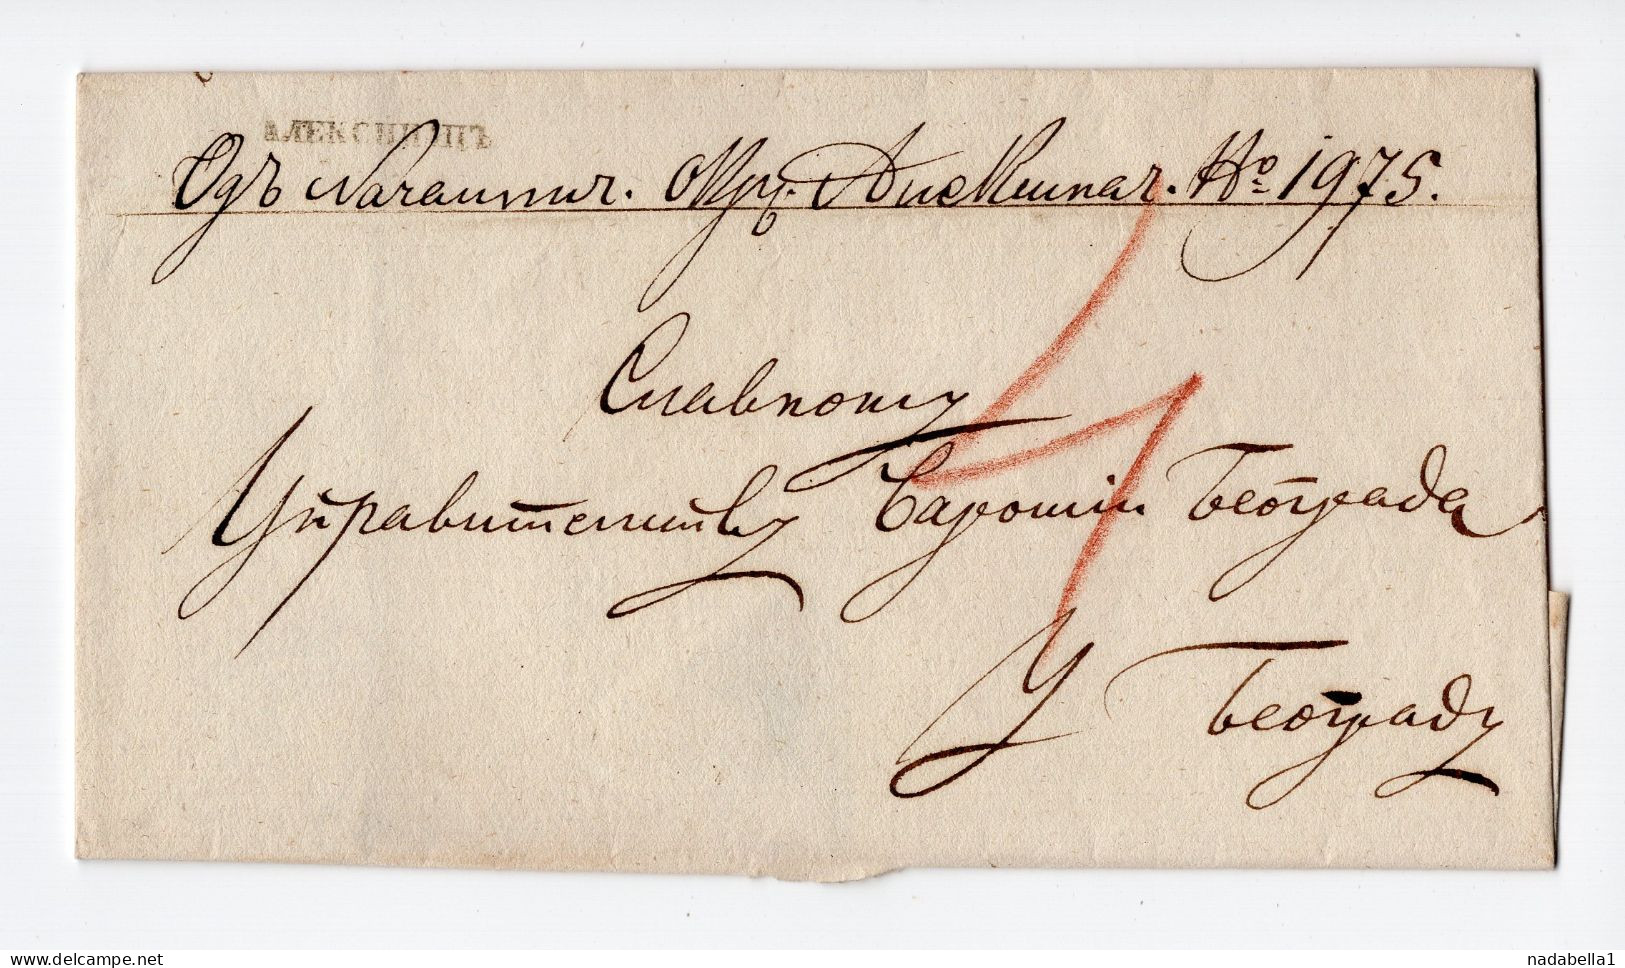 АЛЕКСИНЦЪ
Одъ Началнич. Окру. Алексиначк. No 1975.
Славному
Управителству Вароши Београда
У Београду
delcampe.net
nadabella1